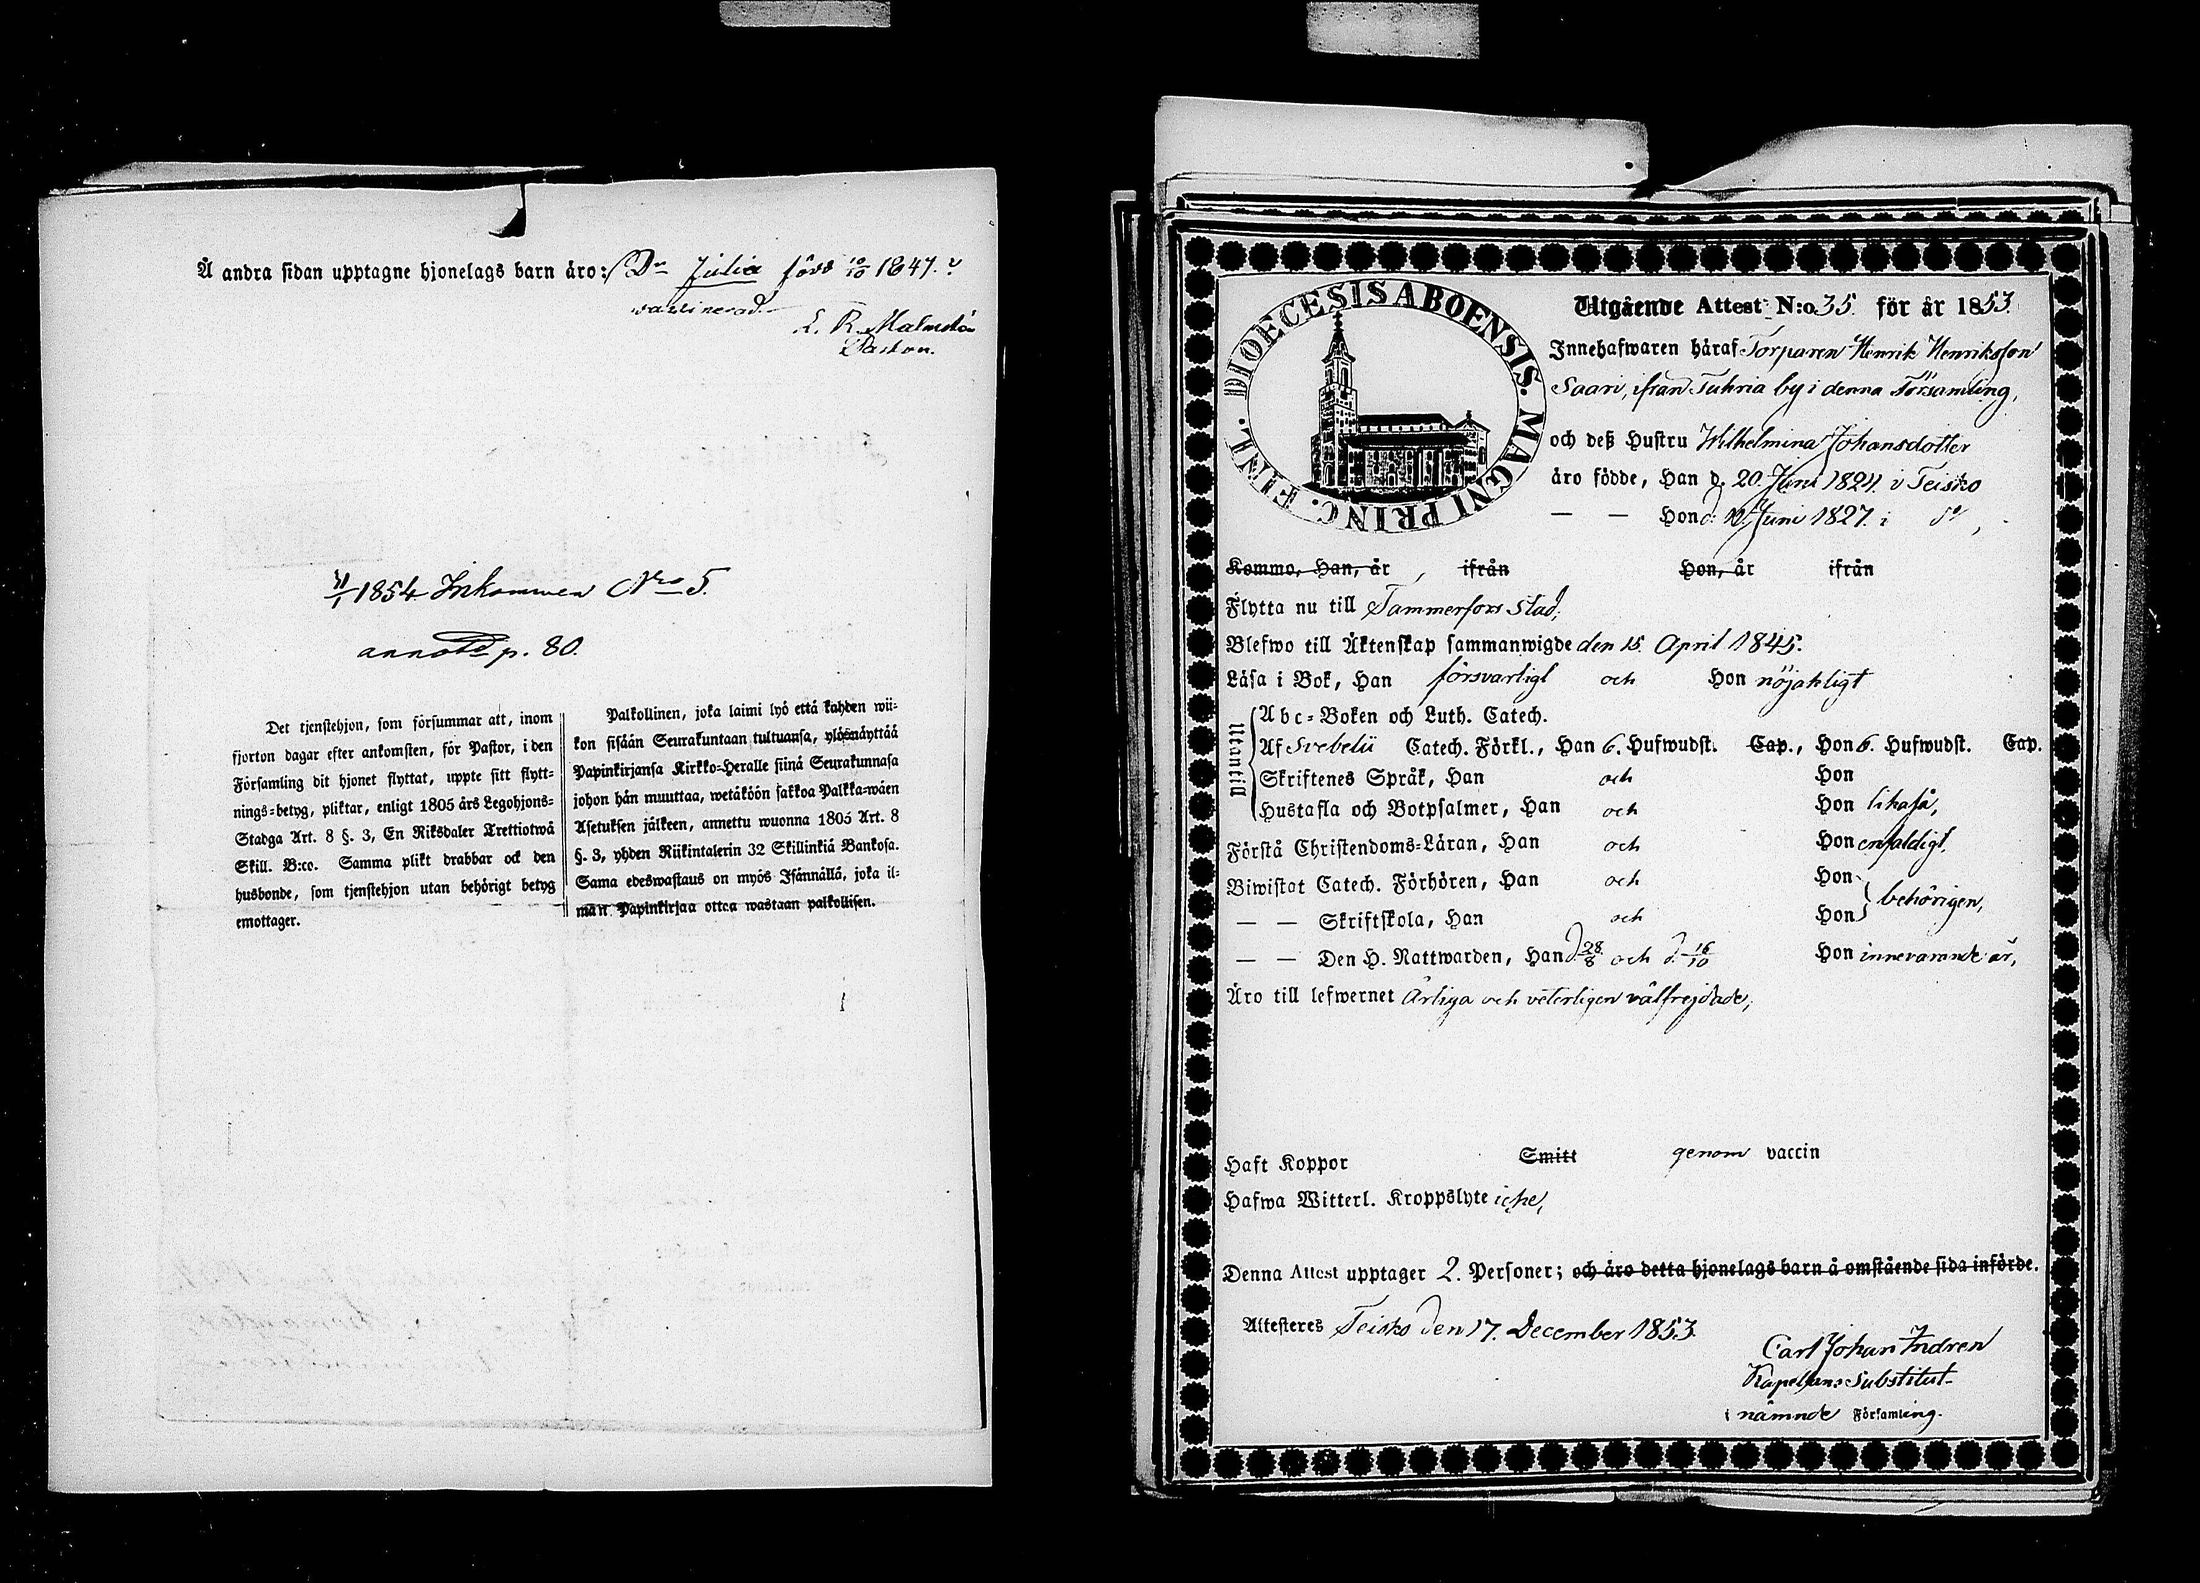 Å andra sidan upptagne hjonelags barn äro: Dr Julia född 10/10 1847. v
vaccinerad.
L. R. Malmstén
Pastor.
1854 Inkommen Nro 5.
annotd p. 80.
Det tjenstehjon, som försummar att, inom
fjorton dagar efter ankomsten, för Pastor, i den
Församling dit hjonet flyttat, uppte sitt flytt-
nings-betyg, pliktar, enligt 1805 års Legohjons-
Stadga Art. 8 §. 3, En Riksdaler Trettiotwå
Skill. B:co. Samma plikt drabbar ock den
husbonde, som tjenstehjon utan behörigt betyg
emottager.
Palkollinen, joka laimi lyö että kahden wii-
kon sisään Seurakuntaan tultuansa, ylösnäyttää
Papinkirjansa Kirkko-Heralle siinä Seurakunnasa
johon hän muuttaa, wetäköön sakkoa Palkka-wäen
Asetuksen jälkeen, annettu wuonna 1805 Art. 8
§. 3, yhden Riikintalerin 32 Skillinkiä Bankosa.
Sama edeswastaus on myös Isännällä, joka il-
man Papinkirjaa ottaa wastaan palkollisen.
DIOECESIS ABOENSIS. MAGNI PRINC. FINL.
Utgående Attest N:o 35. för år 1853.
Innehafwaren häraf Torparen Henrik Henriksson
Saari, ifrån Tuhria by i denna Församling,
och deß Hustru Wilhelmina Johansdotter
äro födde, Han d. 20. Juni 1824. i Teisko
— — Hon d. 12. Juni 1827. i do,
Kommo, Han, år , ifrån Hon, år ifrån
Flytta nu till Tammerfors Stad,
Blefwo till Äktenskap sammanwigde den 15. April 1845.
Läsa i Bok, Han försvarligt och Hon nöjaktigt
Utantill
Abc-Boken och Luth. Catech.
Af Svebelii Catech. Förkl., Han 6. Hufwudst. Cap., Hon 6. Hufwudst. Cap.
Skriftenes Språk, Han och Hon
Hustafla och Botpsalmer, Han och Hon likaså,
Förstå Christendoms-Läran, Han och Hon enfaldigt,
Biwistat Catech. Förhören, Han och Hon
behörigen,
— — Skriftskola, Han och Hon
— — Den H. Nattwarden, Han d. 28/8 och d. 16/10 Hon innevarande år,
Äro till lefwernet Ärliga och veterligen välfrejdade,
Haft Koppor Smitt genom vaccin
Hafwa Witterl. Kroppslyte icke,
Denna Attest upptager 2. Personer; och äro detta hjonelags barn å omstående sida införde.
Attesteres Teisko den 17. December 1853.
Carl Johan Indren
Kapellans Substitut
i nämnde Församling.